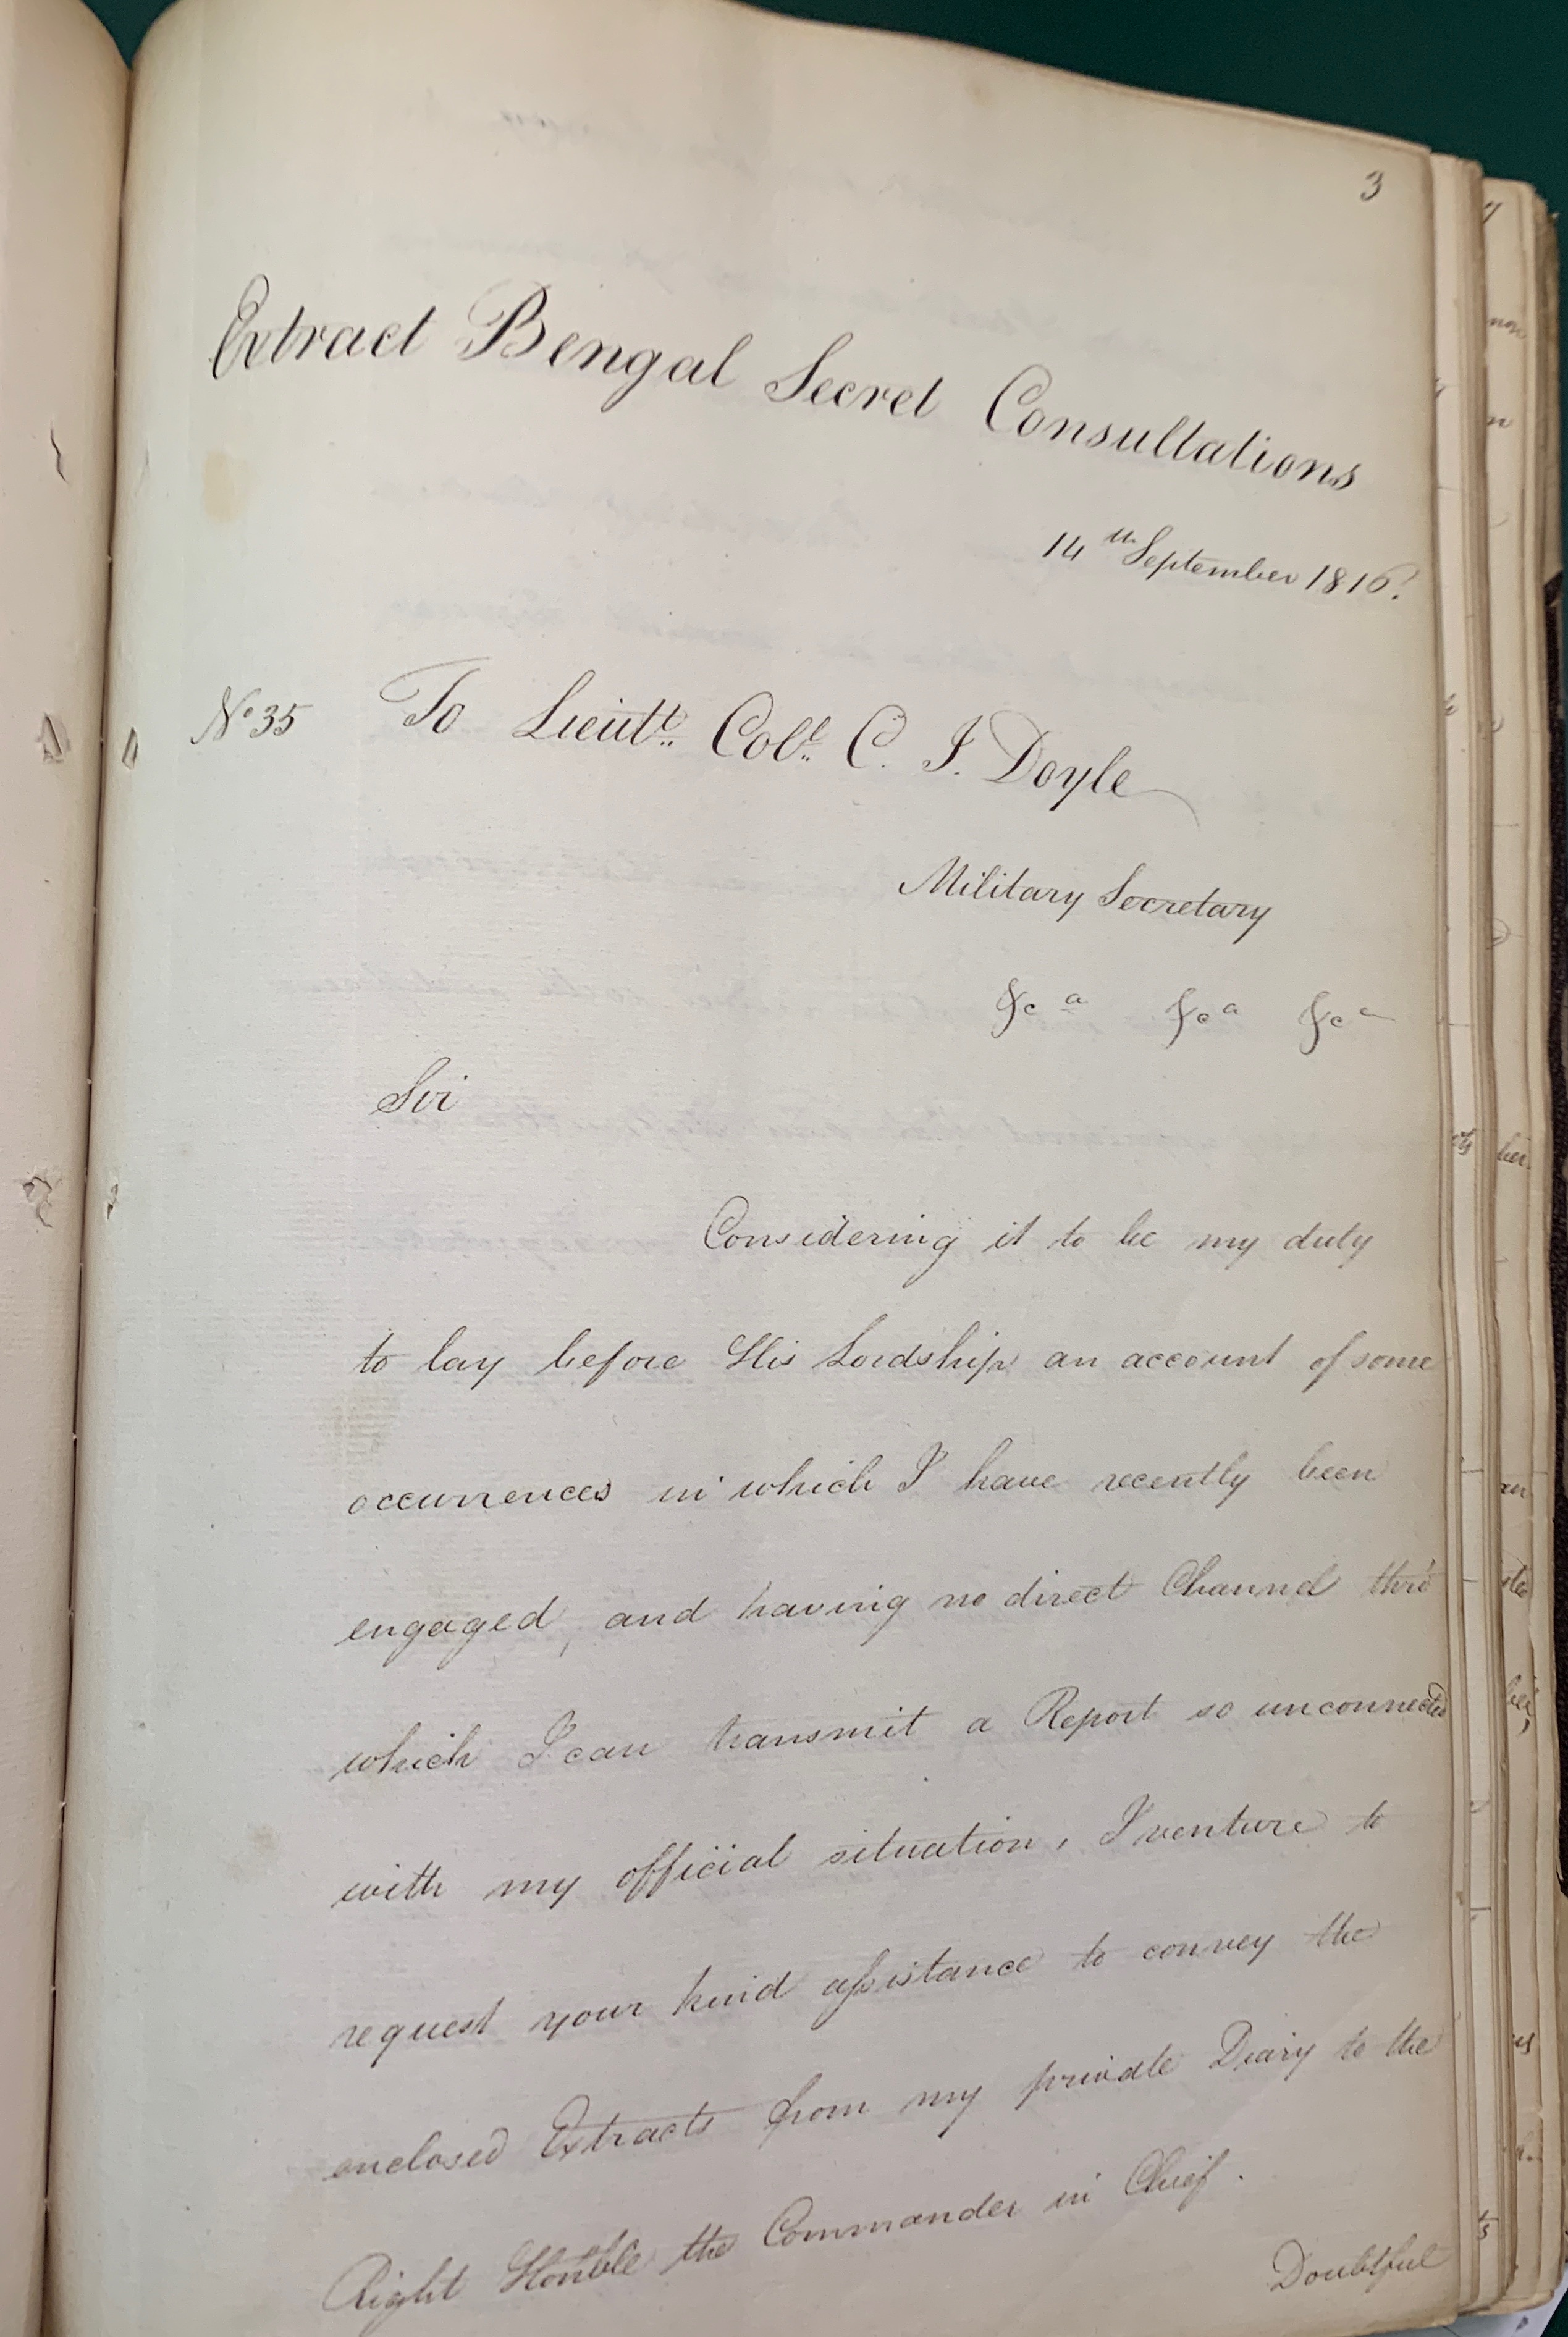 3
Extract Bengal Secret Consultations
14th September 1816.
No 35 To Lieutt. Coll. C. J. Doyle
Military Secretary
&ca &ca &ca
Sir
Considering it to be my duty
to lay before His Lordship an account of some
occurrences in which I have recently been
engaged, and having no direct Channel thro'
which I can transmit a Report so unconnected
with my official situation, I venture to
request your kind assistance to convey the
enclosed Extracts from my private Diary to the
Right Honble the Commander in Chief.
Doubtful